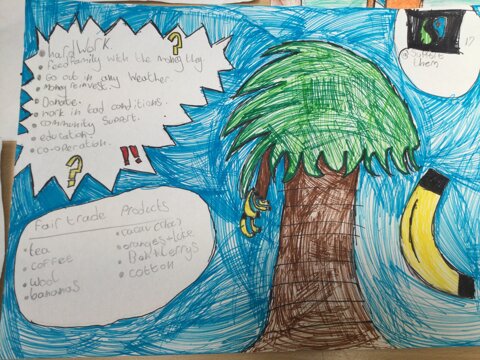 ?
• hard work.
• feed family with the money they
• Go out in any weather.
• Money reinvest.
• Donate.
• work in bad conditions.
• community support.
• education
• co-operation.
?
!!
Fairtrade Products
• tea
• coffee
• wool
• bananas
• cacao
• oranges
• cotton
17